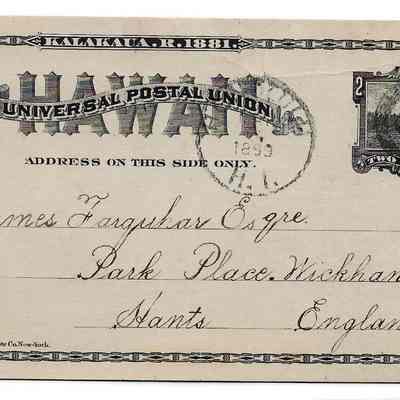 KALAKAUA. R. 1881.
HAWAII
UNIVERSAL POSTAL UNION
1899
H. I.
2
TWO
ADDRESS ON THIS SIDE ONLY.
mes Farquhar Esqre.
Park Place. Wickhan
Hants England
te Co. New-York.